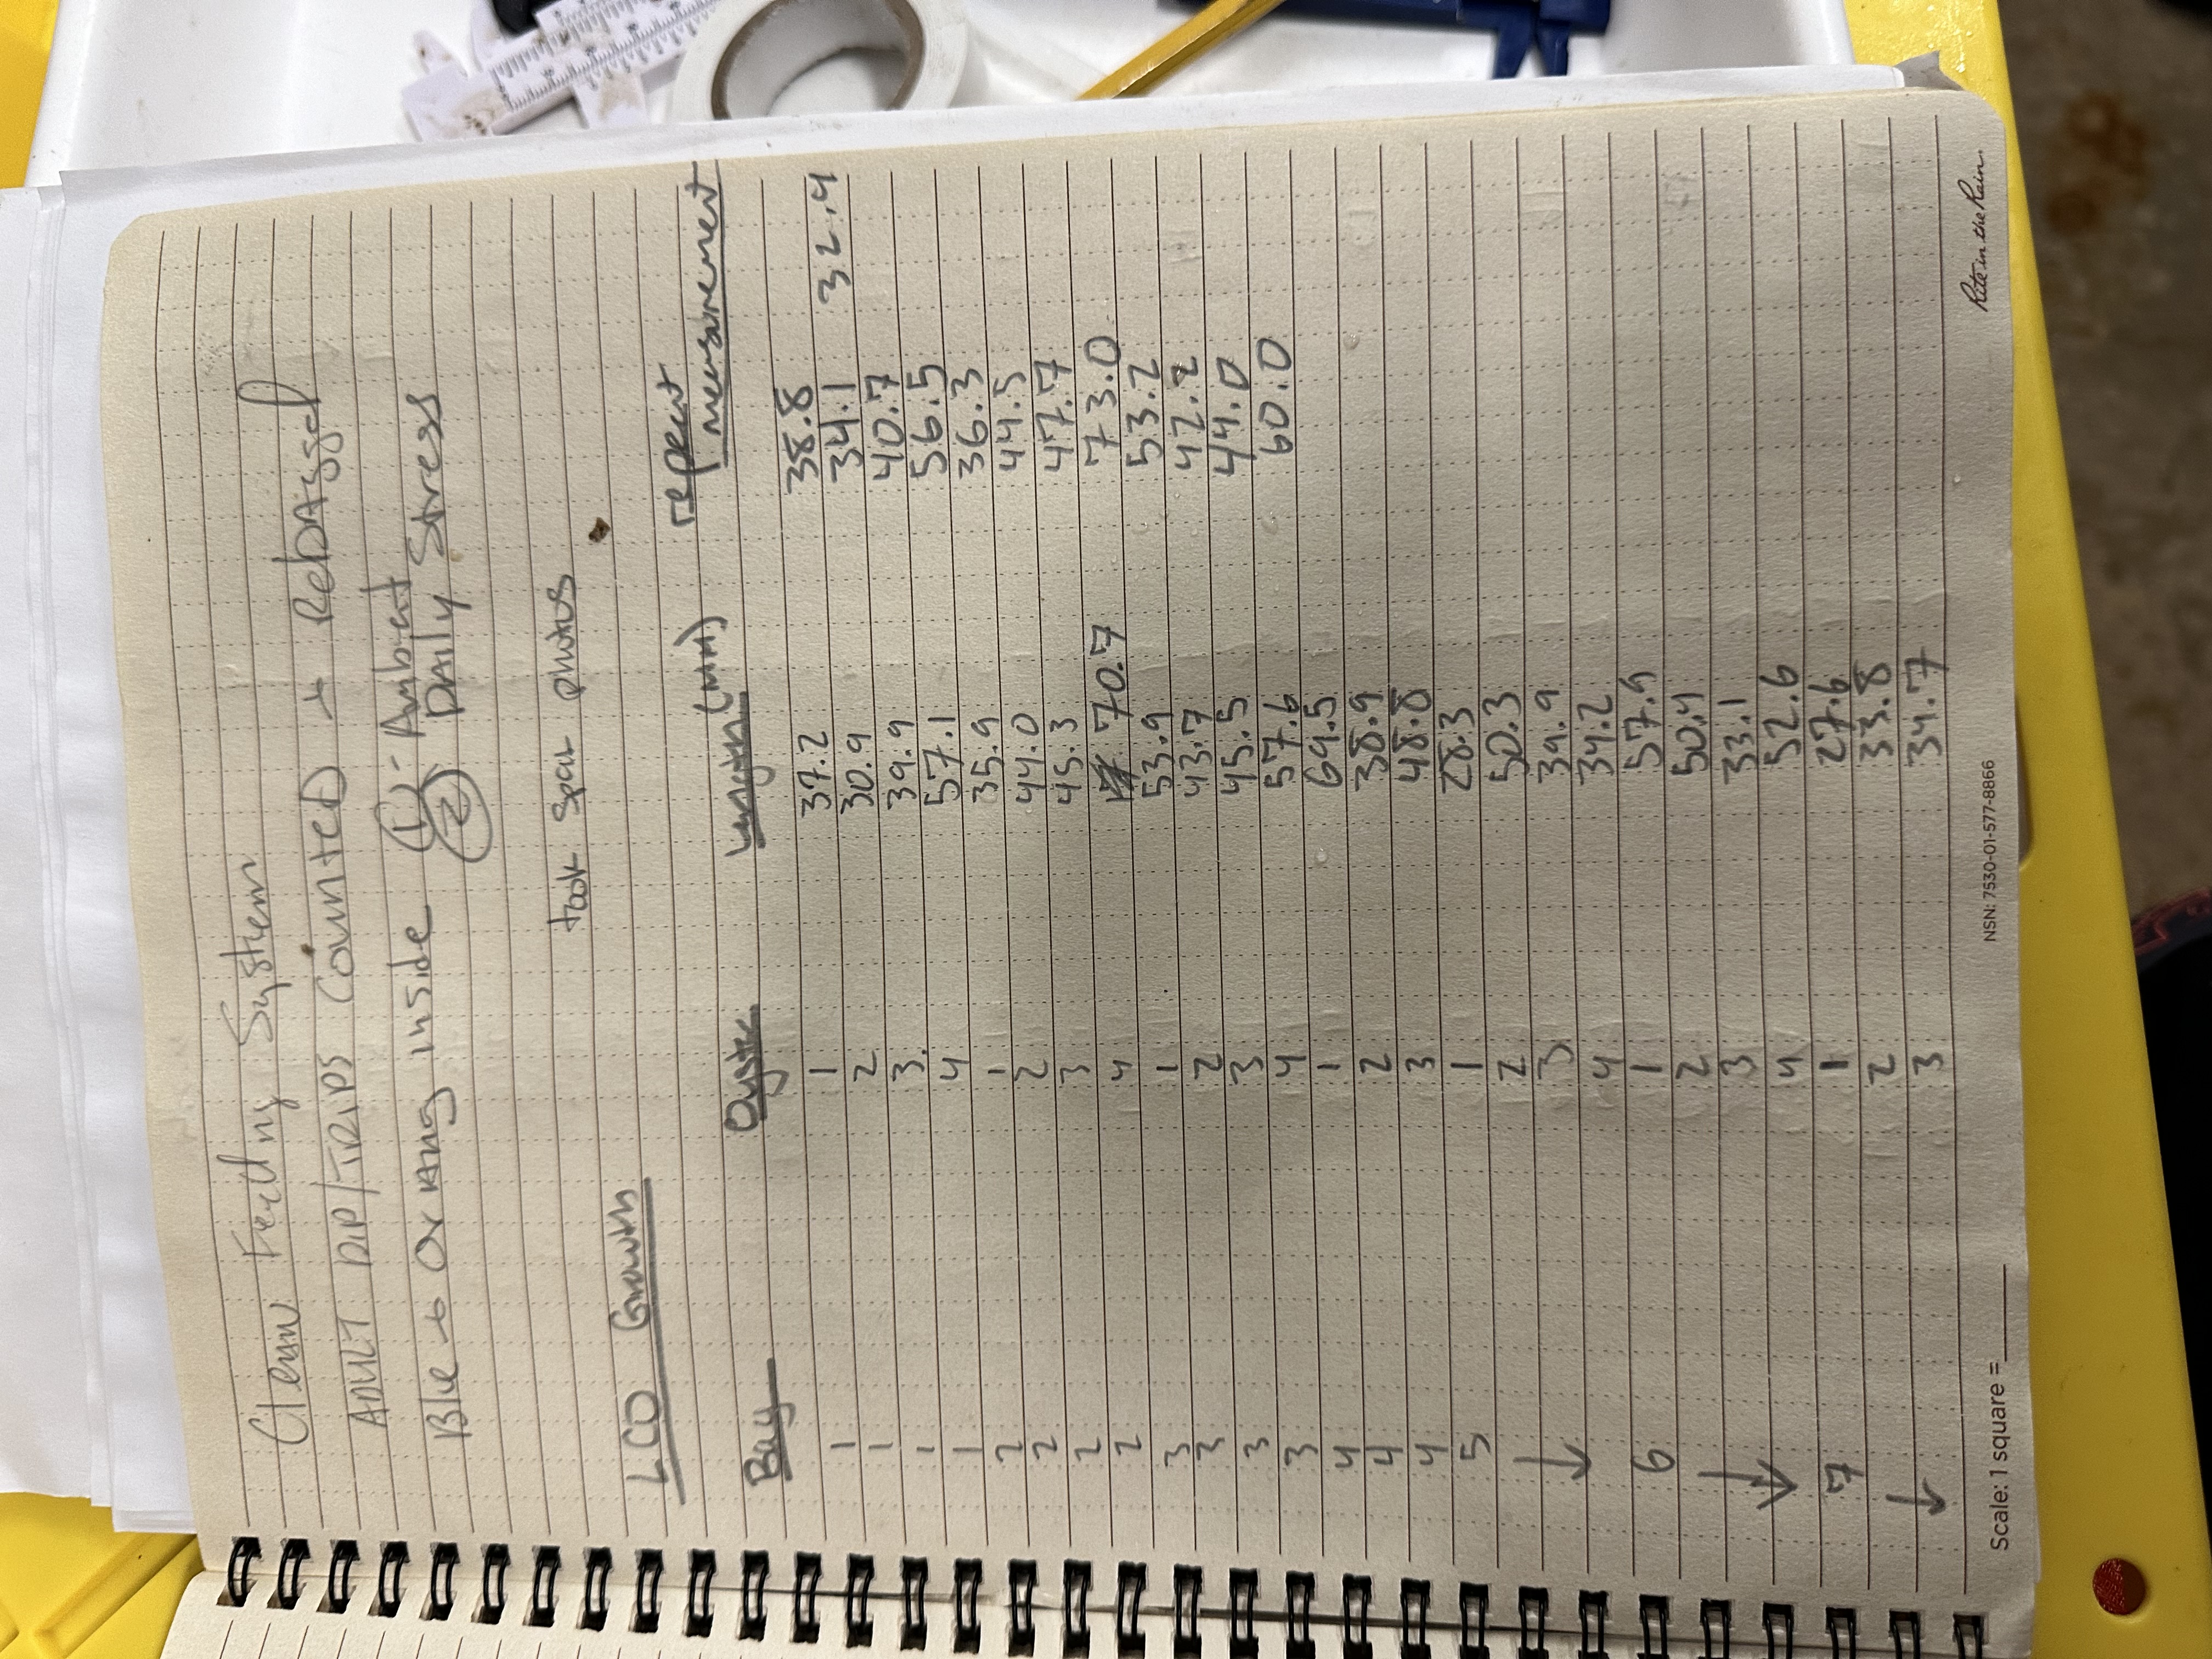 Clean Feeding System
ADULT DIP/TRIPS COUNTED + RebAgged
Blue + Orang inside ① - Ambient
② DAily Stress
took spat photos
LCO Growth
Bag Oyster Length (MM) repeat measurement
1 1 37.2 38.8
1 2 30.9 34.1 32.4
1 3. 39.9 40.7
1 4 57.1 56.5
2 1 35.9 36.3
2 2 44.0 44.5
2 3 45.3 47.7
2 4 70.7 73.0
3 1 53.9 53.2
3 2 43.7 42.2
3 3 45.5 44.0
3 4 57.6 60.0
4 1 69.5
4 2 38.9
4 3 48.8
5 1 28.3
↓ 2 50.3
3 39.9
4 34.2
6 1 57.9
↓ 2 50.4
3 33.1
4 52.6
7 1 27.6
↓ 2 33.8
3 34.7
Scale: 1 square =______ NSN: 7530-01-577-8866 Rite in the Rain.